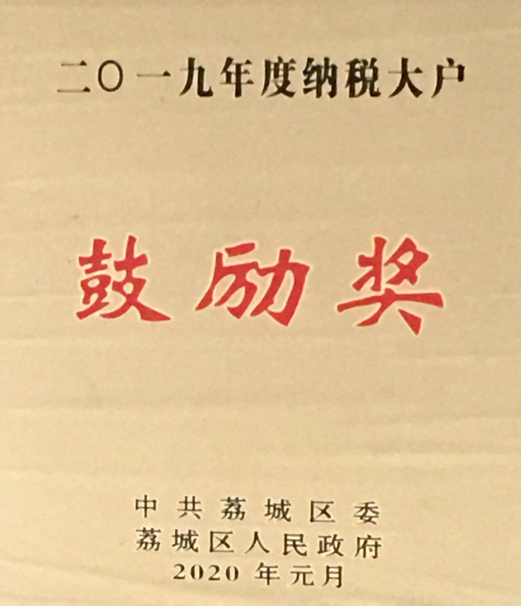 二〇一九年度纳税大户
鼓励奖
中共荔城区委
荔城区人民政府
2020年元月